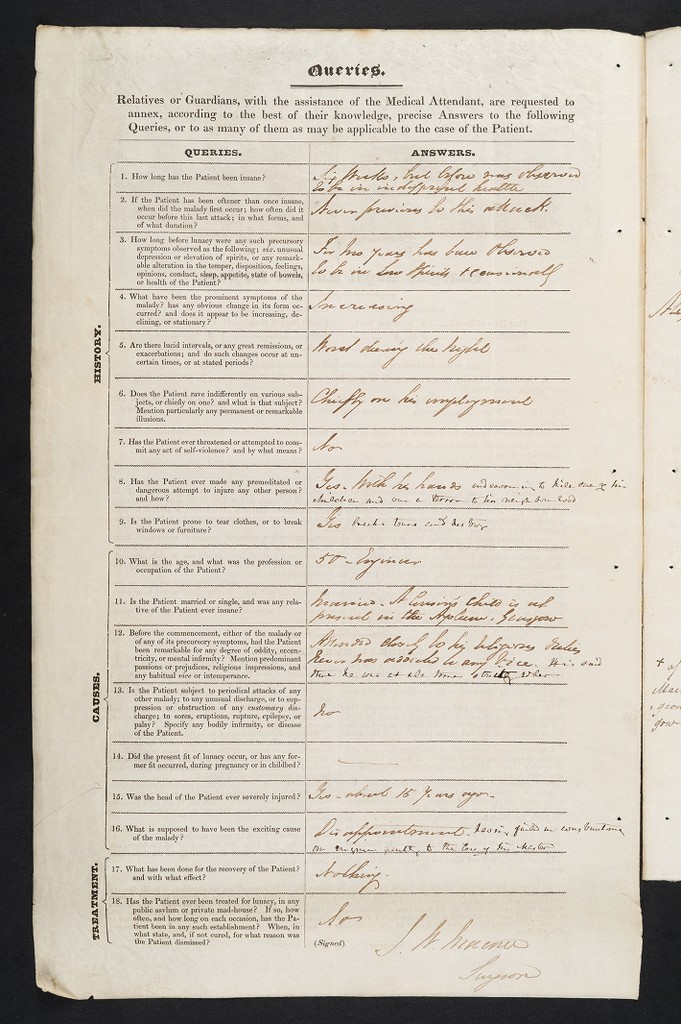 Queries.
Relatives or Guardians, with the assistance of the Medical Attendant, are requested to
annex, according to the best of their knowledge, precise Answers to the following
Queries, or to as many of them as may be applicable to the case of the Patient.
QUERIES.
ANSWERS.
HISTORY.
1. How long has the Patient been insane?
Six Weeks, but before was observed
to be in indifferent health
2. If the Patient has been oftener than once insane,
when did the malady first occur; how often did it
occur before this last attack; in what forms, and
of what duration?
Never previous to this attack.
3. How long before lunacy were any such precursory
symptoms observed as the following; viz. unusual
depression or elevation of spirits, or any remark-
able alteration in the temper, disposition, feelings,
opinions, conduct, sleep, appetite, state of bowels,
or health of the Patient?
For two years has been observed
to be in low spirits occasionally
4. What have been the prominent symptoms of the
malady? has any obvious change in its form oc-
curred? and does it appear to be increasing, de-
clining, or stationary?
Increasing
5. Are there lucid intervals, or any great remissions, or
exacerbations; and do such changes occur at un-
certain times, or at stated periods?
Worst during the Night
6. Does the Patient rave indifferently on various sub-
jects, or chiefly on one? and what is that subject?
Mention particularly any permanent or remarkable
illusions.
Chiefly on his employment
7. Has the Patient ever threatened or attempted to com-
mit any act of self-violence? and by what means?
No
8. Has the Patient ever made any premeditated or
dangerous attempt to injure any other person?
and how?
Yes. With his hands endeavouring to kill one of his
children and was a terror to his neighbourhood
9. Is the Patient prone to tear clothes, or to break
windows or furniture?
Yes tears and
CAUSES.
10. What is the age, and what was the profession or
occupation of the Patient?
50 - Engineer
11. Is the Patient married or single, and was any rela-
tive of the Patient ever insane?
Married. A Cousin's Child is at
present in the Asylum. Glasgow
12. Before the commencement, either of the malady or
of any of its precursory symptoms, had the Patient
been remarkable for any degree of oddity, eccen-
tricity, or mental infirmity? Mention predominant
passions or prejudices, religious impressions, and
any habitual vice or intemperance.
Attended closely to his religious duties
Never was addicted to any Vice. It is said
that he was at all times strictly sober
13. Is the Patient subject to periodical attacks of any
other malady; to any unusual discharge, or to sup-
pression or obstruction of any customary dis-
charge; to sores, eruptions, rupture, epilepsy, or
palsy? Specify any bodily infirmity, or disease
of the Patient.
No
14. Did the present fit of lunacy occur, or has any for-
mer fit occurred, during pregnancy or in childbed?
15. Was the head of the Patient ever severely injured?
Yes - about 15 years ago -
16. What is supposed to have been the exciting cause
of the malady?
Disappointment. having failed in constructing
an engine greatly to the loss of his Master
TREATMENT.
17. What has been done for the recovery of the Patient?
and with what effect?
Nothing.
18. Has the Patient ever been treated for lunacy, in any
public asylum or private mad-house? If so, how
often, and how long on each occasion, has the Pa-
tient been in any such establishment? When, in
what state, and, if not cured, for what reason was
the Patient dismissed?
No
(Signed)
Surgeon